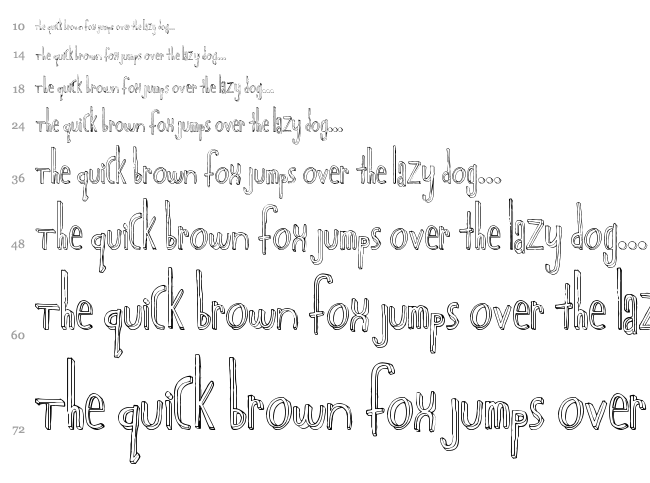 10 The quick brown fox jumps over the lazy dog...
14 The quick brown fox jumps over the lazy dog...
18 The quick brown fox jumps over the lazy dog...
24 The quick brown fox jumps over the lazy dog...
36 The quick brown fox jumps over the lazy dog...
48 The quick brown fox jumps over the lazy dog...
60 The quick brown fox jumps over the laz
72 The quick brown fox jumps over